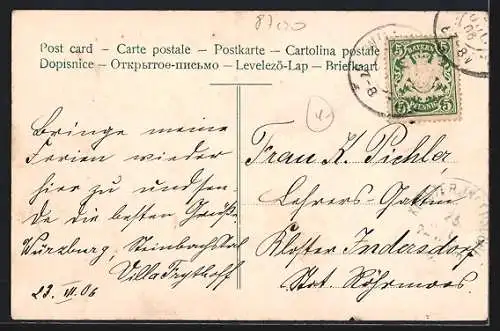 8700
Post card - Carte postale - Postkarte - Cartolina postale
Dopisnice - Открытое-письмо - Levelező-Lap - Briefkaart
BAYERN
5 5
5 5
PFENNIG
4
Bringe meine
Ferien wieder
hier zu und sen-
de die besten Grüße.
Würzburg, Steinbachtal
Villa
23. III. 06
Frau K. Pichler,
Lehrers-Gattin
Kloster Indersdorf
Röhrmoos